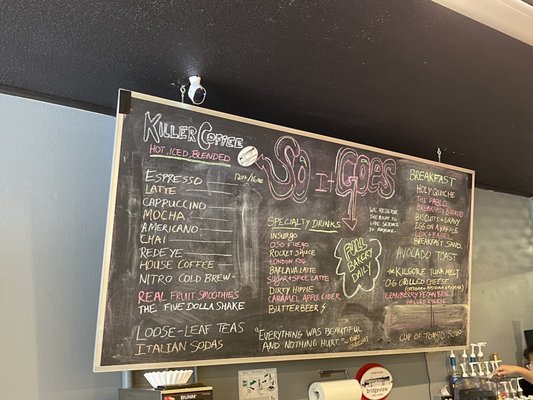 KILLER COFFEE
HOT, ICED, BLENDED
ESPRESSO
LATTE
CAPPUCCINO
MOCHA
AMERICANO
CHAI
REDEYE
HOUSE COFFEE
NITRO COLD BREW
REAL FRUIT SMOOTHIES
THE FIVE DOLLA SHAKE
LOOSE-LEAF TEAS
ITALIAN SODAS
SO IT GOES
SPECIALTY DRINKS
OSO FUEGO
ROCKET SAUCE
LONDON FOG
BAKLAVA LATTE
SUGAR+SPICE LATTE
DIRTY HIPPIE
CARAMEL APPLE CIDER
BUTTERBEER
"EVERYTHING WAS BEAUTIFUL
AND NOTHING HURT."
WE RESERVE
THE RIGHT TO
SERVICE
TO ANYONE
FULL
BAKERY
DAILY
BREAKFAST
HOLY QUICHE
THE PABLO
BREAKFAST BURRITO
BISCUITS + GRAVY
EGG N A WAFFLE
LOX + BAGEL
BREAKFAST SAND.
AVOCADO TOAST
THE KILGORE TUNA MELT
OG GRILLED CHEESE
CRANBERRY PECAN BRIE
CUP OF TOMATO SOUP
BUNN